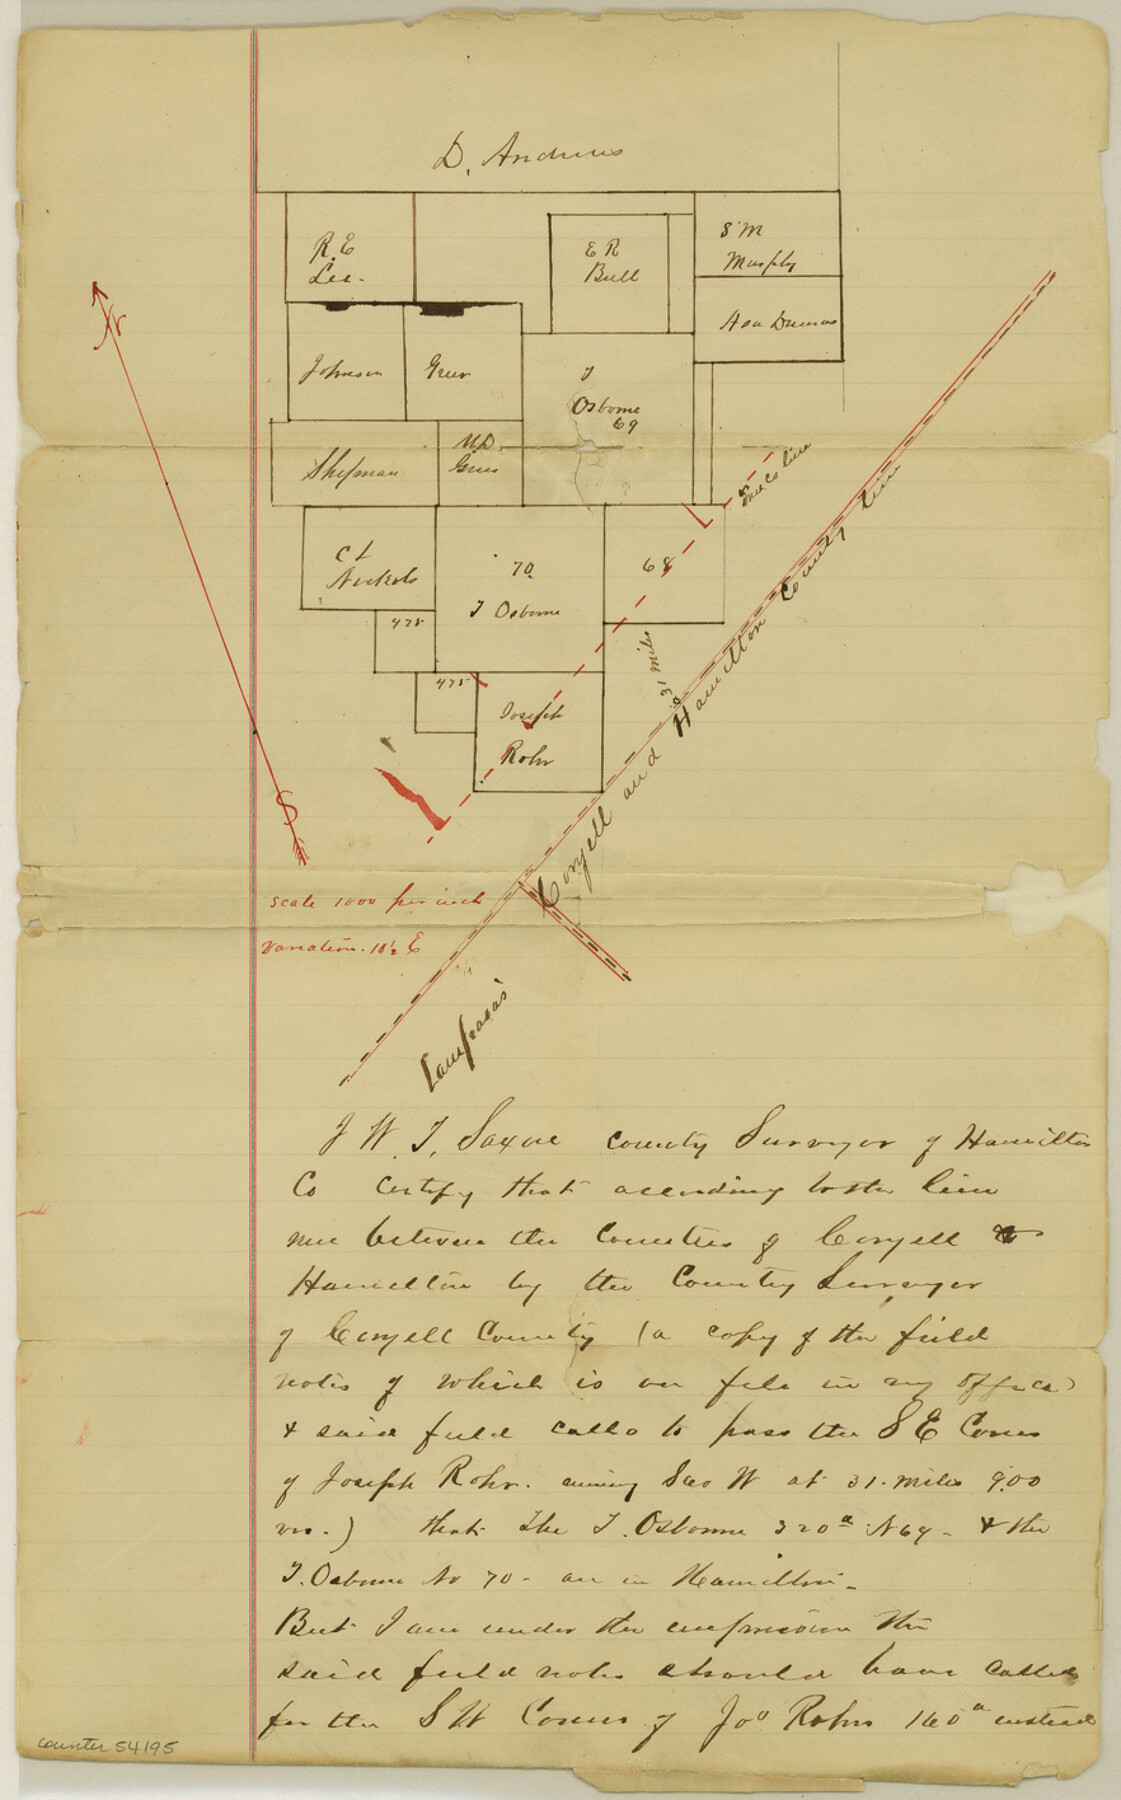 D. Andrews
R. E
Lee
E R
Bull
S M
Murphy
Asa Dumas
N
Johnson
Greer
T
Osborne
69
Shipman
M.D.
Greer
True Co line
C L
Nickols
70
T Osborne
68
475
475
Joseph
Rohr
31 miles
Coryell and Hamilton County line
S
Scale 1000 per inch
Variation. 10½ E
Lampasas
I W. T. Saxon County Surveyor of Hamilton
Co Certify that according to the line
run between the Counties of Coryell &
Hamilton by the County Surveyor
of Coryell County (a copy of the field
notes of which is on file in my office)
& said field calls to pass the S E Corner
of Joseph Rohr. running S60 W at 31. miles 900
vrs.) that the T. Osborne 320 a N 69 - & the
T. Osborne No 70 - are in Hamilton -
But I am under the impression the
said field notes should have called
for the S W Corner of Jos Rohrs 160 a instead
counter 54195